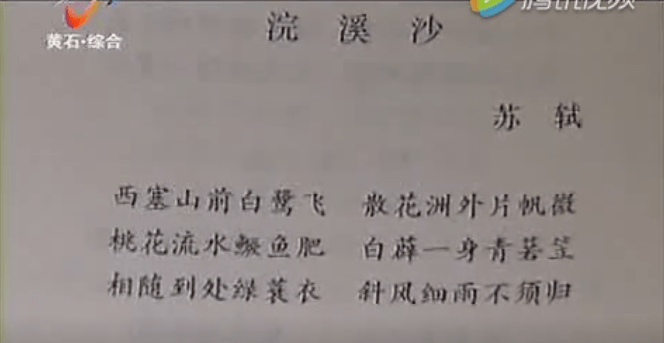 黄石·综合
腾讯视频
浣溪沙
苏轼
西塞山前白鹭飞 散花洲外片帆微
桃花流水鳜鱼肥 白薜一身青箬笠
相随到处绿蓑衣 斜风细雨不须归